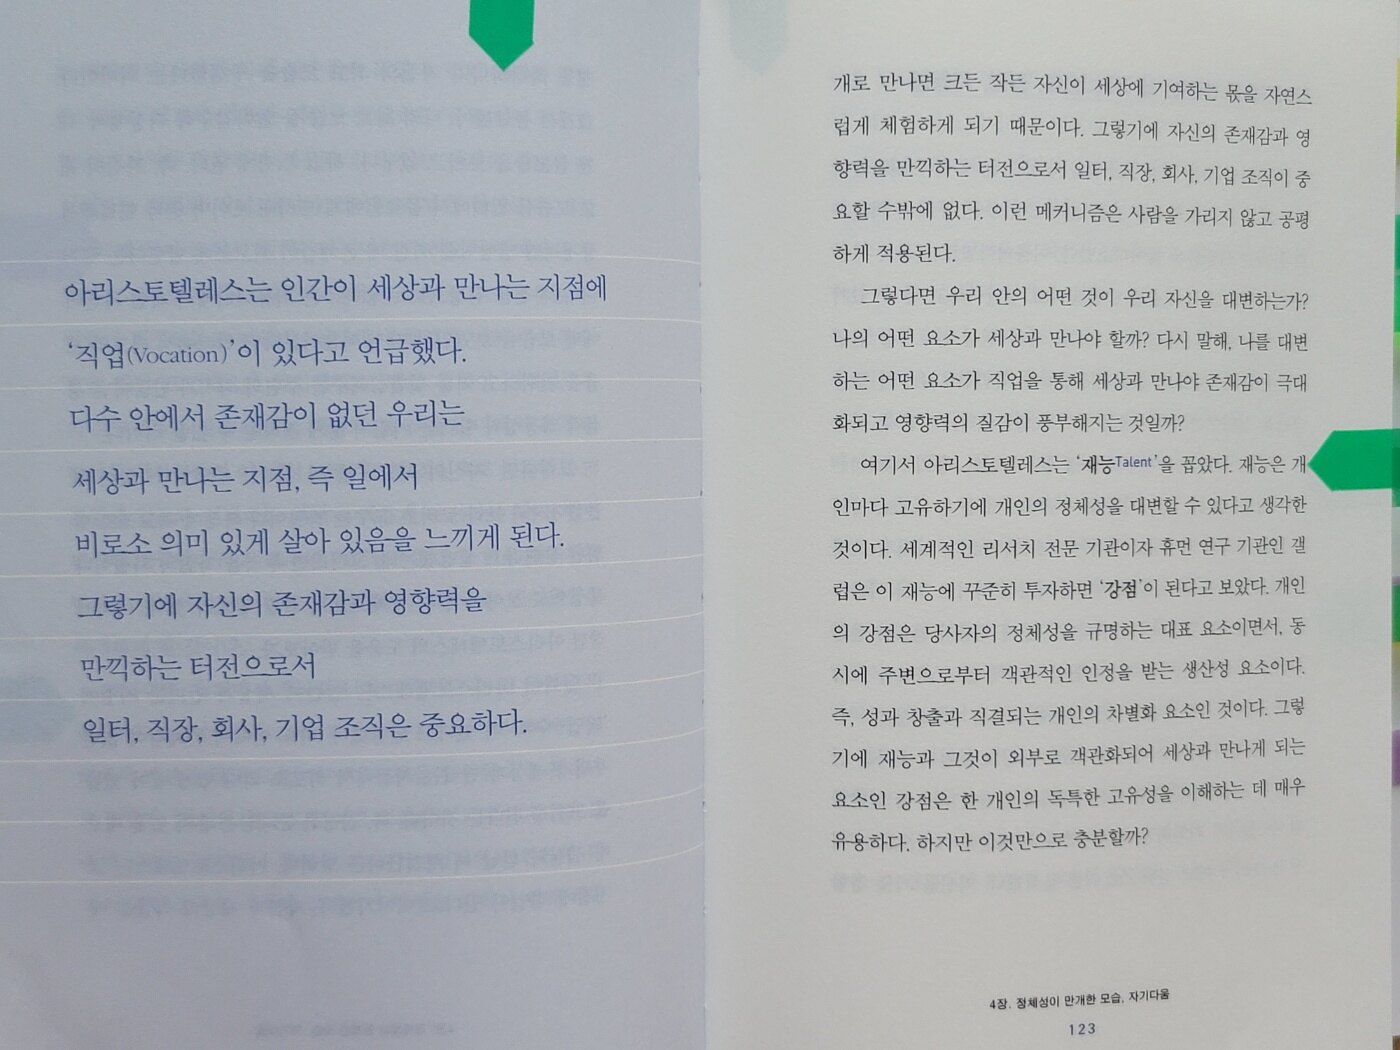 아리스토텔레스는 인간이 세상과 만나는 지점에
‘직업(Vocation)’이 있다고 언급했다.
다수 안에서 존재감이 없던 우리는
세상과 만나는 지점, 즉 일에서
비로소 의미 있게 살아 있음을 느끼게 된다.
그렇기에 자신의 존재감과 영향력을
만끽하는 터전으로서
일터, 직장, 회사, 기업 조직은 중요하다.
개로 만나면 크든 작든 자신이 세상에 기여하는 몫을 자연스
럽게 체험하게 되기 때문이다. 그렇기에 자신의 존재감과 영
향력을 만끽하는 터전으로서 일터, 직장, 회사, 기업 조직이 중
요할 수밖에 없다. 이런 메커니즘은 사람을 가리지 않고 공평
하게 적용된다.
그렇다면 우리 안의 어떤 것이 우리 자신을 대변하는가?
나의 어떤 요소가 세상과 만나야 할까? 다시 말해, 나를 대변
하는 어떤 요소가 직업을 통해 세상과 만나야 존재감이 극대
화되고 영향력의 질감이 풍부해지는 것일까?
여기서 아리스토텔레스는 ‘재능Talent’을 꼽았다. 재능은 개
인마다 고유하기에 개인의 정체성을 대변할 수 있다고 생각한
것이다. 세계적인 리서치 전문 기관이자 휴먼 연구 기관인 갤
럽은 이 재능에 꾸준히 투자하면 ‘강점’이 된다고 보았다. 개인
의 강점은 당사자의 정체성을 규명하는 대표 요소이면서, 동
시에 주변으로부터 객관적인 인정을 받는 생산성 요소이다.
즉, 성과 창출과 직결되는 개인의 차별화 요소인 것이다. 그렇
기에 재능과 그것이 외부로 객관화되어 세상과 만나게 되는
요소인 강점은 한 개인의 독특한 고유성을 이해하는 데 매우
유용하다. 하지만 이것만으로 충분할까?
4장. 정체성이 만개한 모습, 자기다움
123